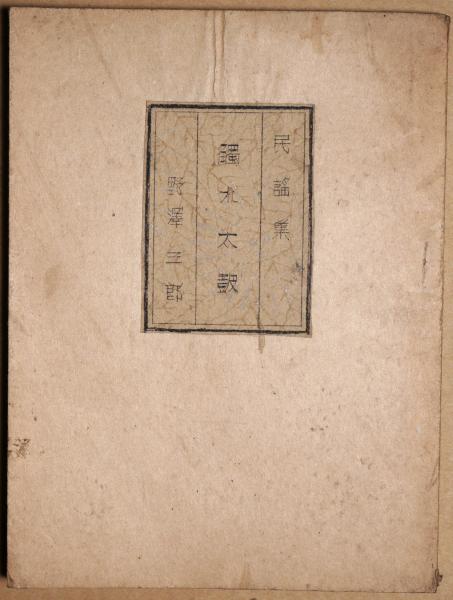 民謡集
濁水太鼓
野澤三郎